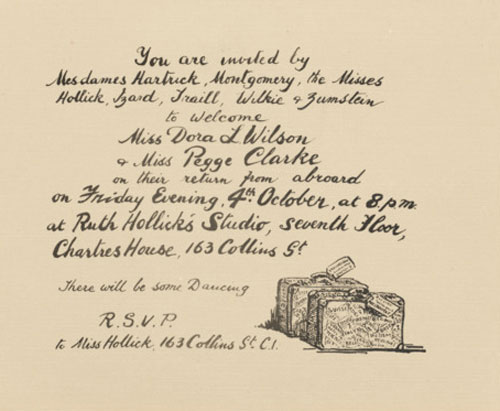 You are invited by
Mesdames Hartrick, Montgomery, the Misses
Hollick, Izard, Traill, Wilkie & Zumstein
to welcome
Miss Dora L Wilson
& Miss Pegge Clarke
on their return from abroad
on Friday Evening, 4th October, at 8.p.m
at Ruth Hollick's Studio, seventh Floor,
Chartres House, 163 Collins St
There will be some Dancing
R.S.V.P.
to Miss Hollick, 163 Collins St. C.1.